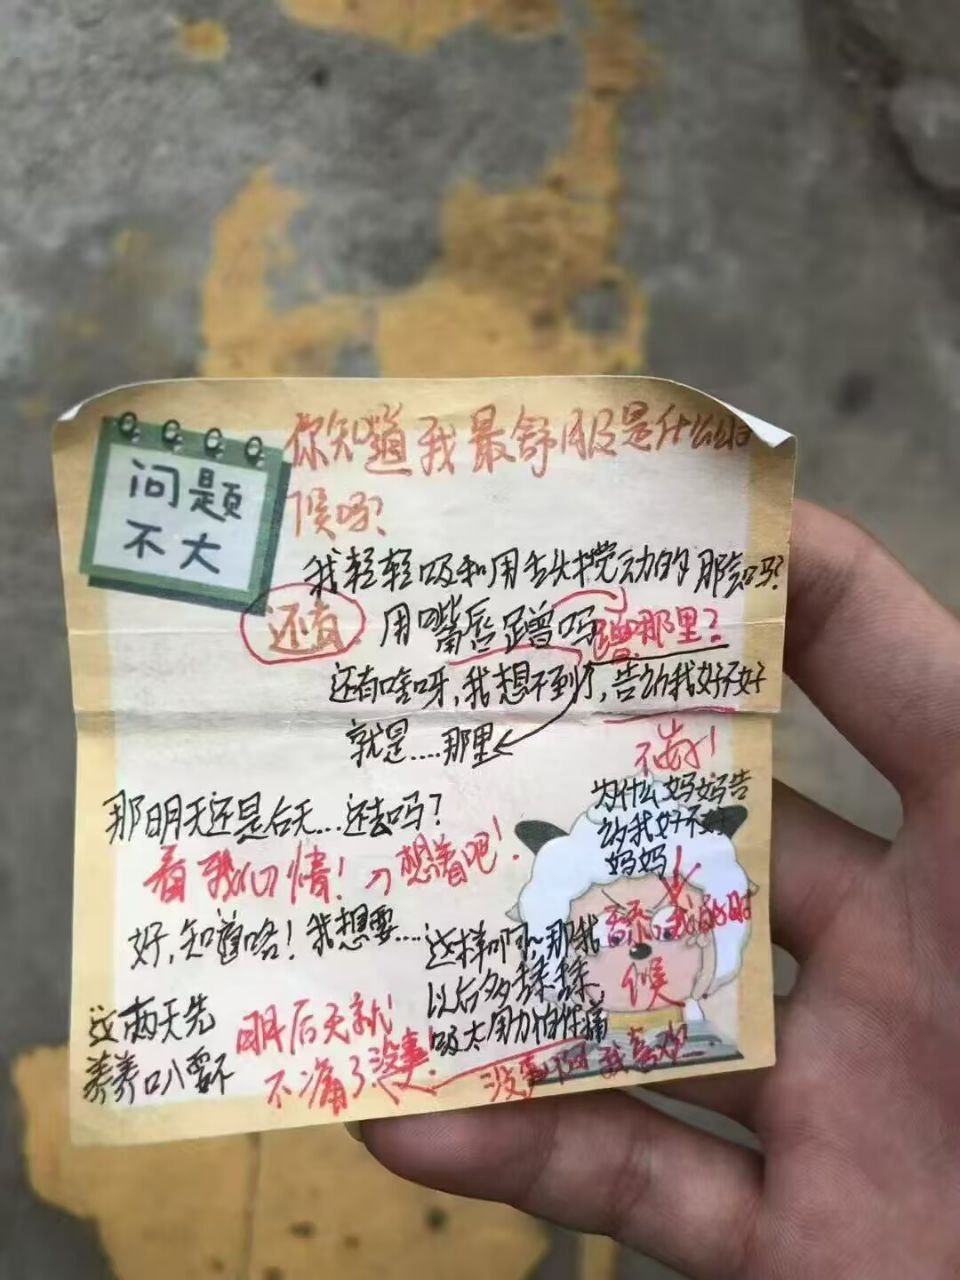 问题
不大
你知道我最舒服是什么时
候吗?
我轻轻吸和用舌头搅动的那会吗?
还有 用嘴唇蹭吗 蹭那里?
还有啥呀,我想不到了,告诉我好不好
就是....那里
不告!
为什么妈妈告
诉我好不好
妈妈
那明天还是后天...还去吗?
看我心情! 想着吧!
好,知道咯!我想要....
这样啊~那我
以后多
吸太用力怕你痛
我的时
候
这两天先
养养 要不
明后天就
不痛了没事!
没事 我喜欢